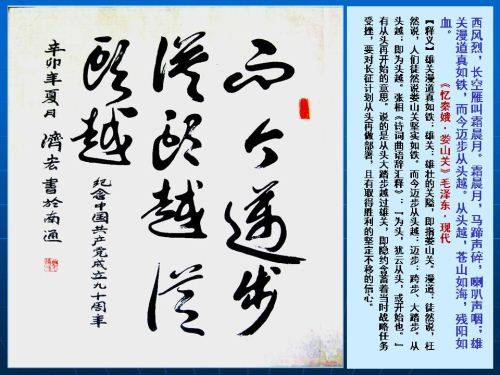 西风烈，长空雁叫霜晨月。霜晨月，马蹄声碎，喇叭声咽；雄
关漫道真如铁，而今迈步从头越。从头越，苍山如海，残阳如
血。
《忆秦娥·娄山关》毛泽东·现代
【释义】雄关漫道真如铁：雄关，雄壮的关隘，即指娄山关。漫道：徒然说，枉
然说，人们徒然说娄山关坚实如铁。而今迈步从头越：迈步：跨步、大踏步。从
头越：即为头越。张相《诗词曲语辞汇释》：“为头，犹云从头，或开始也。”
有从头再开始的意思。说的是从头大踏步越过雄关，即隐约含蓄着当时战略任务
受挫，要对长征计划从头再做部署，且有取得胜利的坚定不移的信心。
而今邁步
從頭越從
頭越
纪念中国共产党成立九十周年
辛卯年夏月 濟宏書於南通